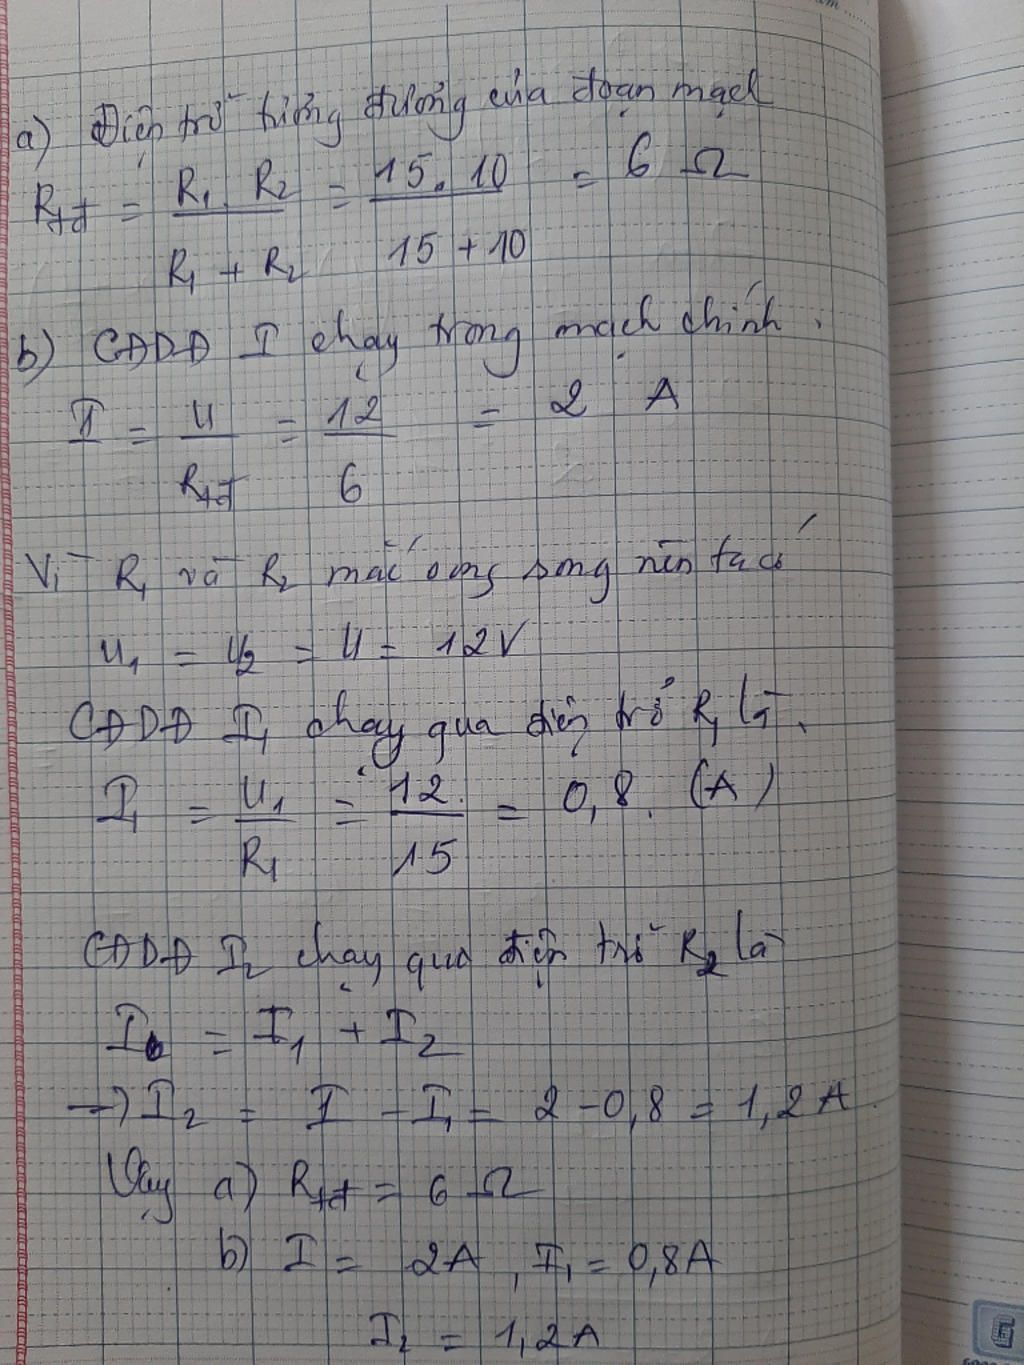 a) Điện trở tương đương của đoạn mạch
Rtđ = R1 . R2 / R1 + R2 = 15 . 10 / 15 + 10 = 6 Ω
b) CĐDĐ I chạy trong mạch chính.
I = U / Rtđ = 12 / 6 = 2 A
Vì R1 và R2 mắc song song nên ta có
U1 = U2 = U = 12V
CĐDĐ I1 chạy qua điện trở R1 là.
I1 = U1 / R1 = 12 / 15 = 0,8. (A)
CĐDĐ I2 chạy qua điện trở R2 là
I = I1 + I2
→ I2 = I - I1 = 2 - 0,8 = 1,2 A
Vậy a) Rtđ = 6 Ω
b) I = 2A, I1 = 0,8A
I2 = 1,2A
G